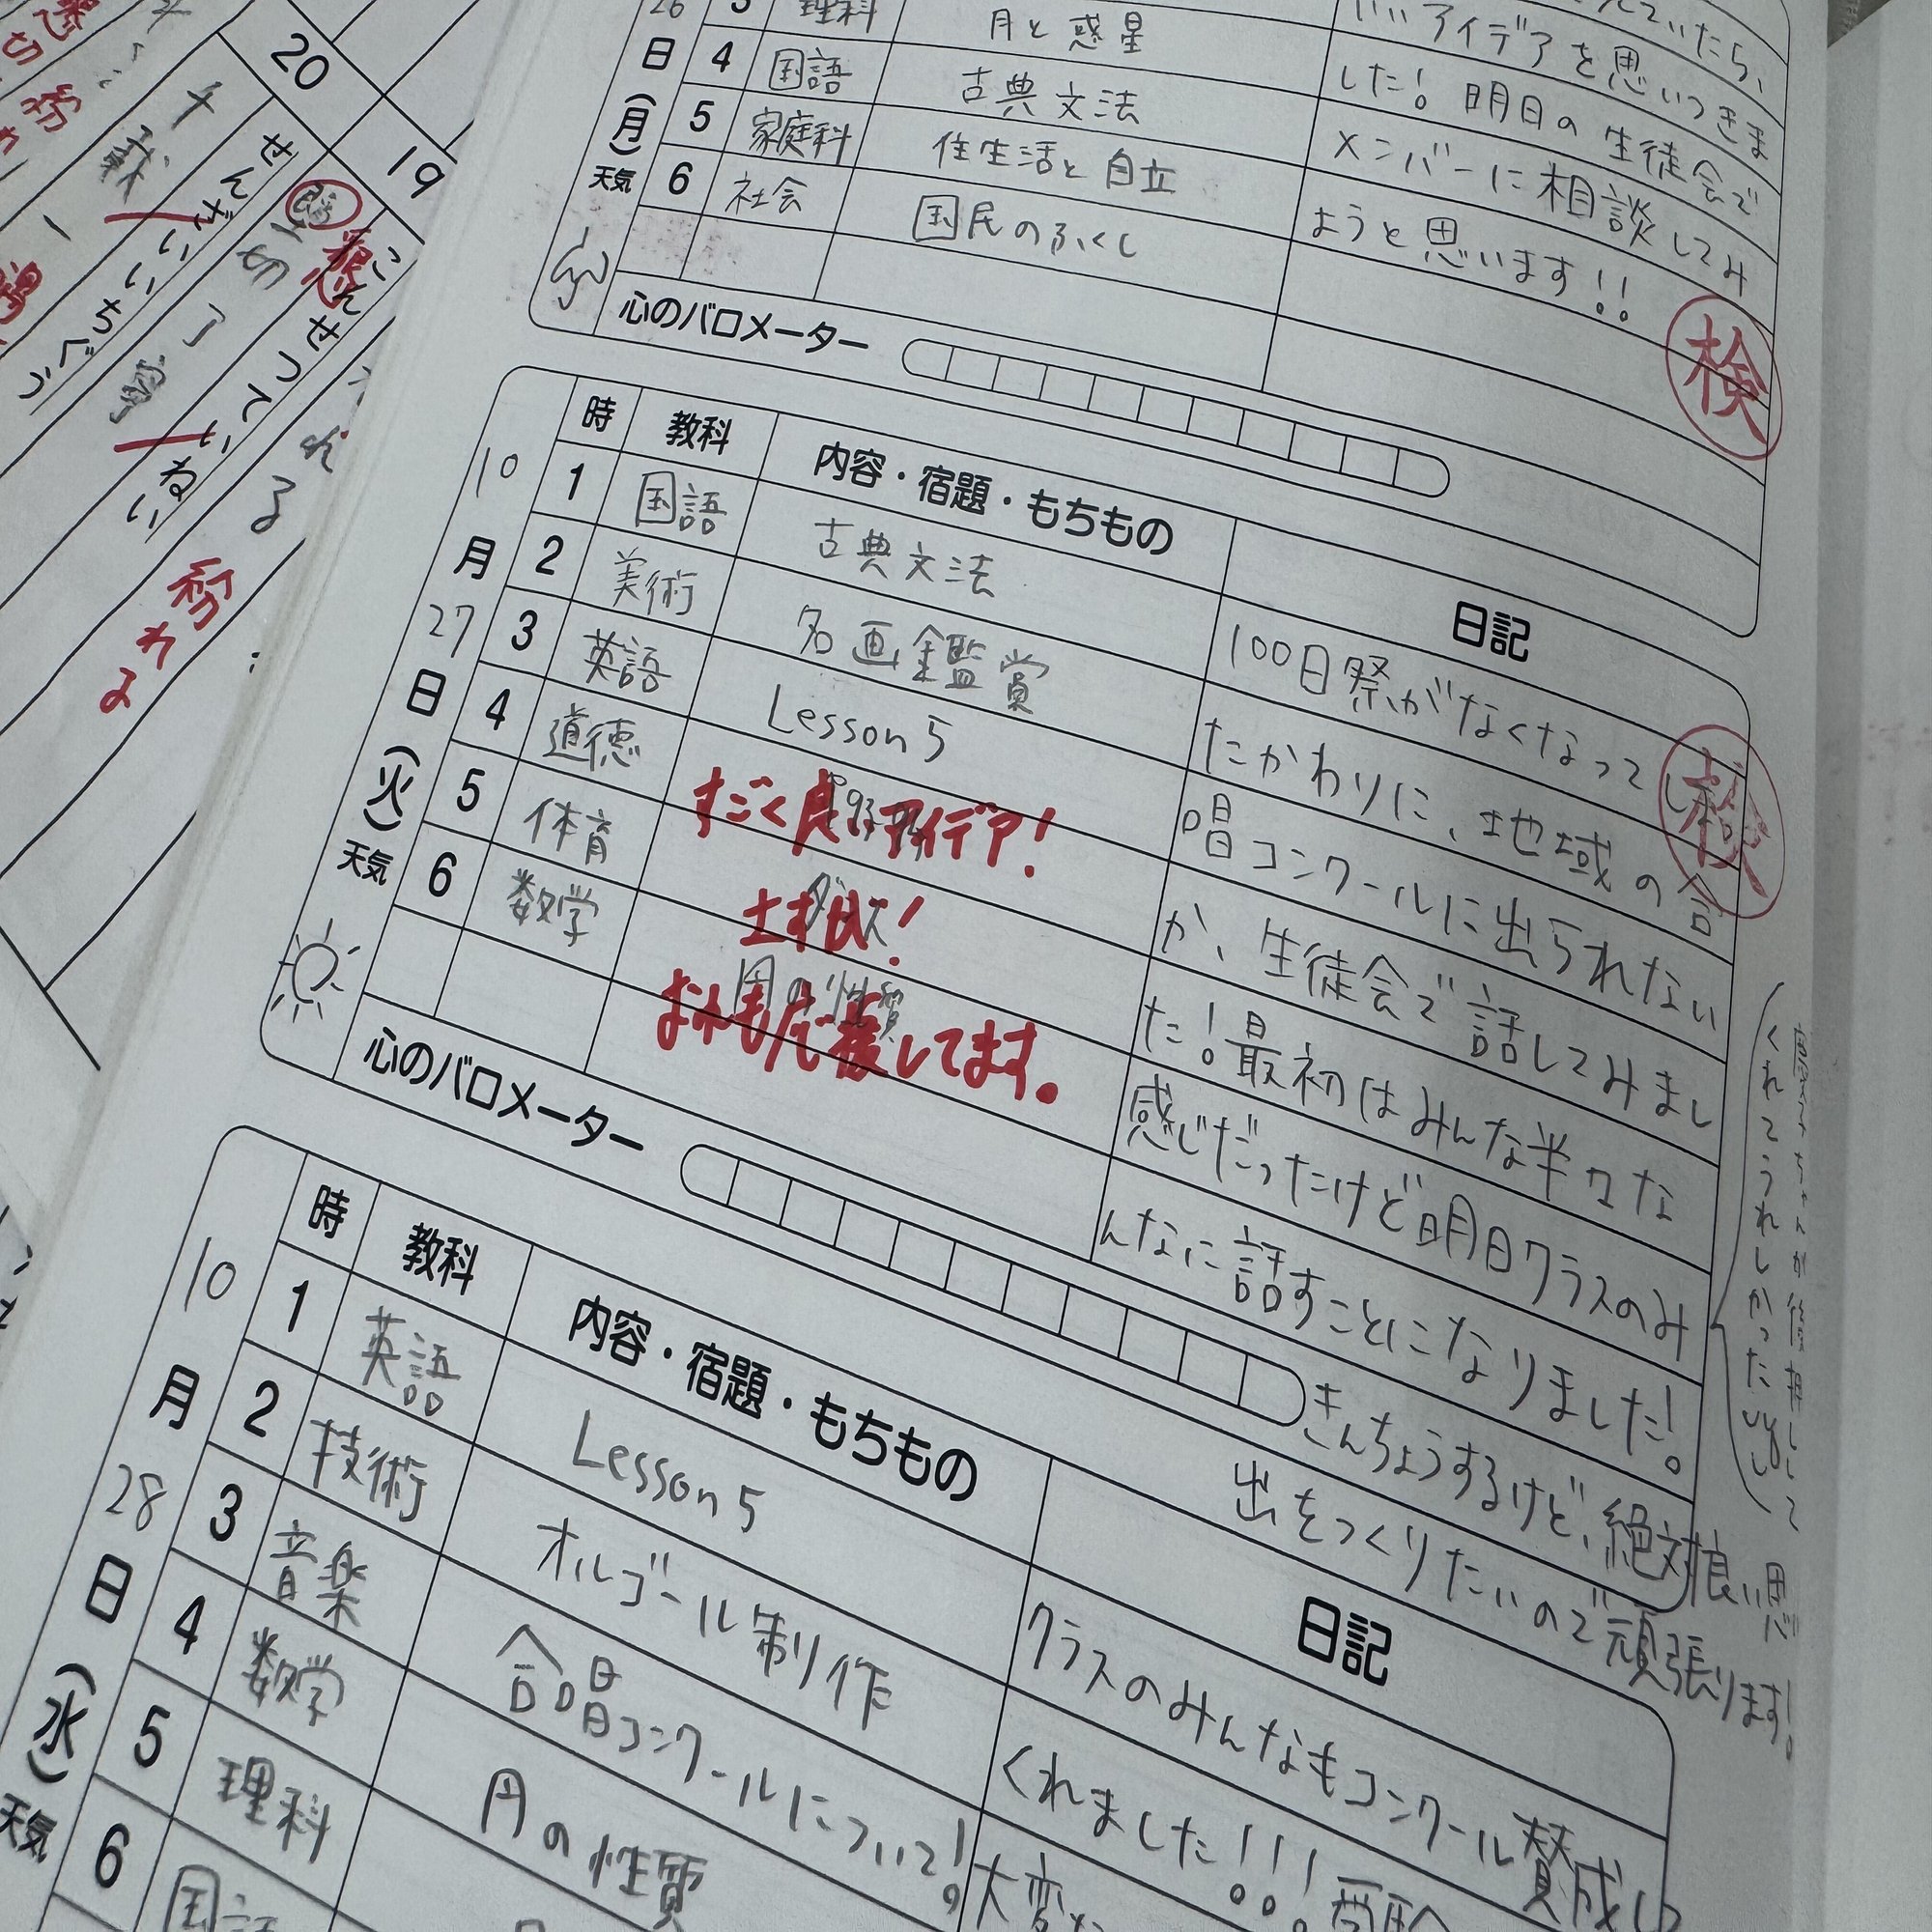 20
19
せんざいいちぐう
千載一
こんせつていねい
懇
切丁寧
れる
粉れる
26
日
(月)
天気
3 理科 月と惑星
4 国語 古典文法
5 家庭科 住生活と自立
6 社会 国民のふくし
ていたら、
いいアイデアを思いつきま
した！明日の生徒会で
メンバーに相談してみ
ようと思います！！
検
心のバロメーター
時 教科 内容・宿題・もちもの 日記
10
月
27
日
(火)
天気
1 国語 古典文法
2 美術 名画鑑賞
3 英語 Lesson 5
4 道徳
5 体育 ダンス
6 数学 円の性質
すごく良いアイデア！
応援してます。
100日祭がなくなってしまっ
たかわりに、地域の合
唱コンクールに出られない
か、生徒会で話してみまし
た！最初はみんな半々な
感じだったけど明日クラスのみ
んなに話すことになりました！
きんちょうするけど、絶対良い思
出をつくりたいので頑張ります！
検
くれてうれしかった
心のバロメーター
時 教科 内容・宿題・もちもの 日記
10
月
28
日
(水)
天気
1 英語 Lesson 5
2 技術 オルゴール制作
3 音楽 合唱コンクールについて！
4 数学 円の性質
5 理科
6 国語
クラスのみんなもコンクール賛成し
くれました！！！受験
大変な